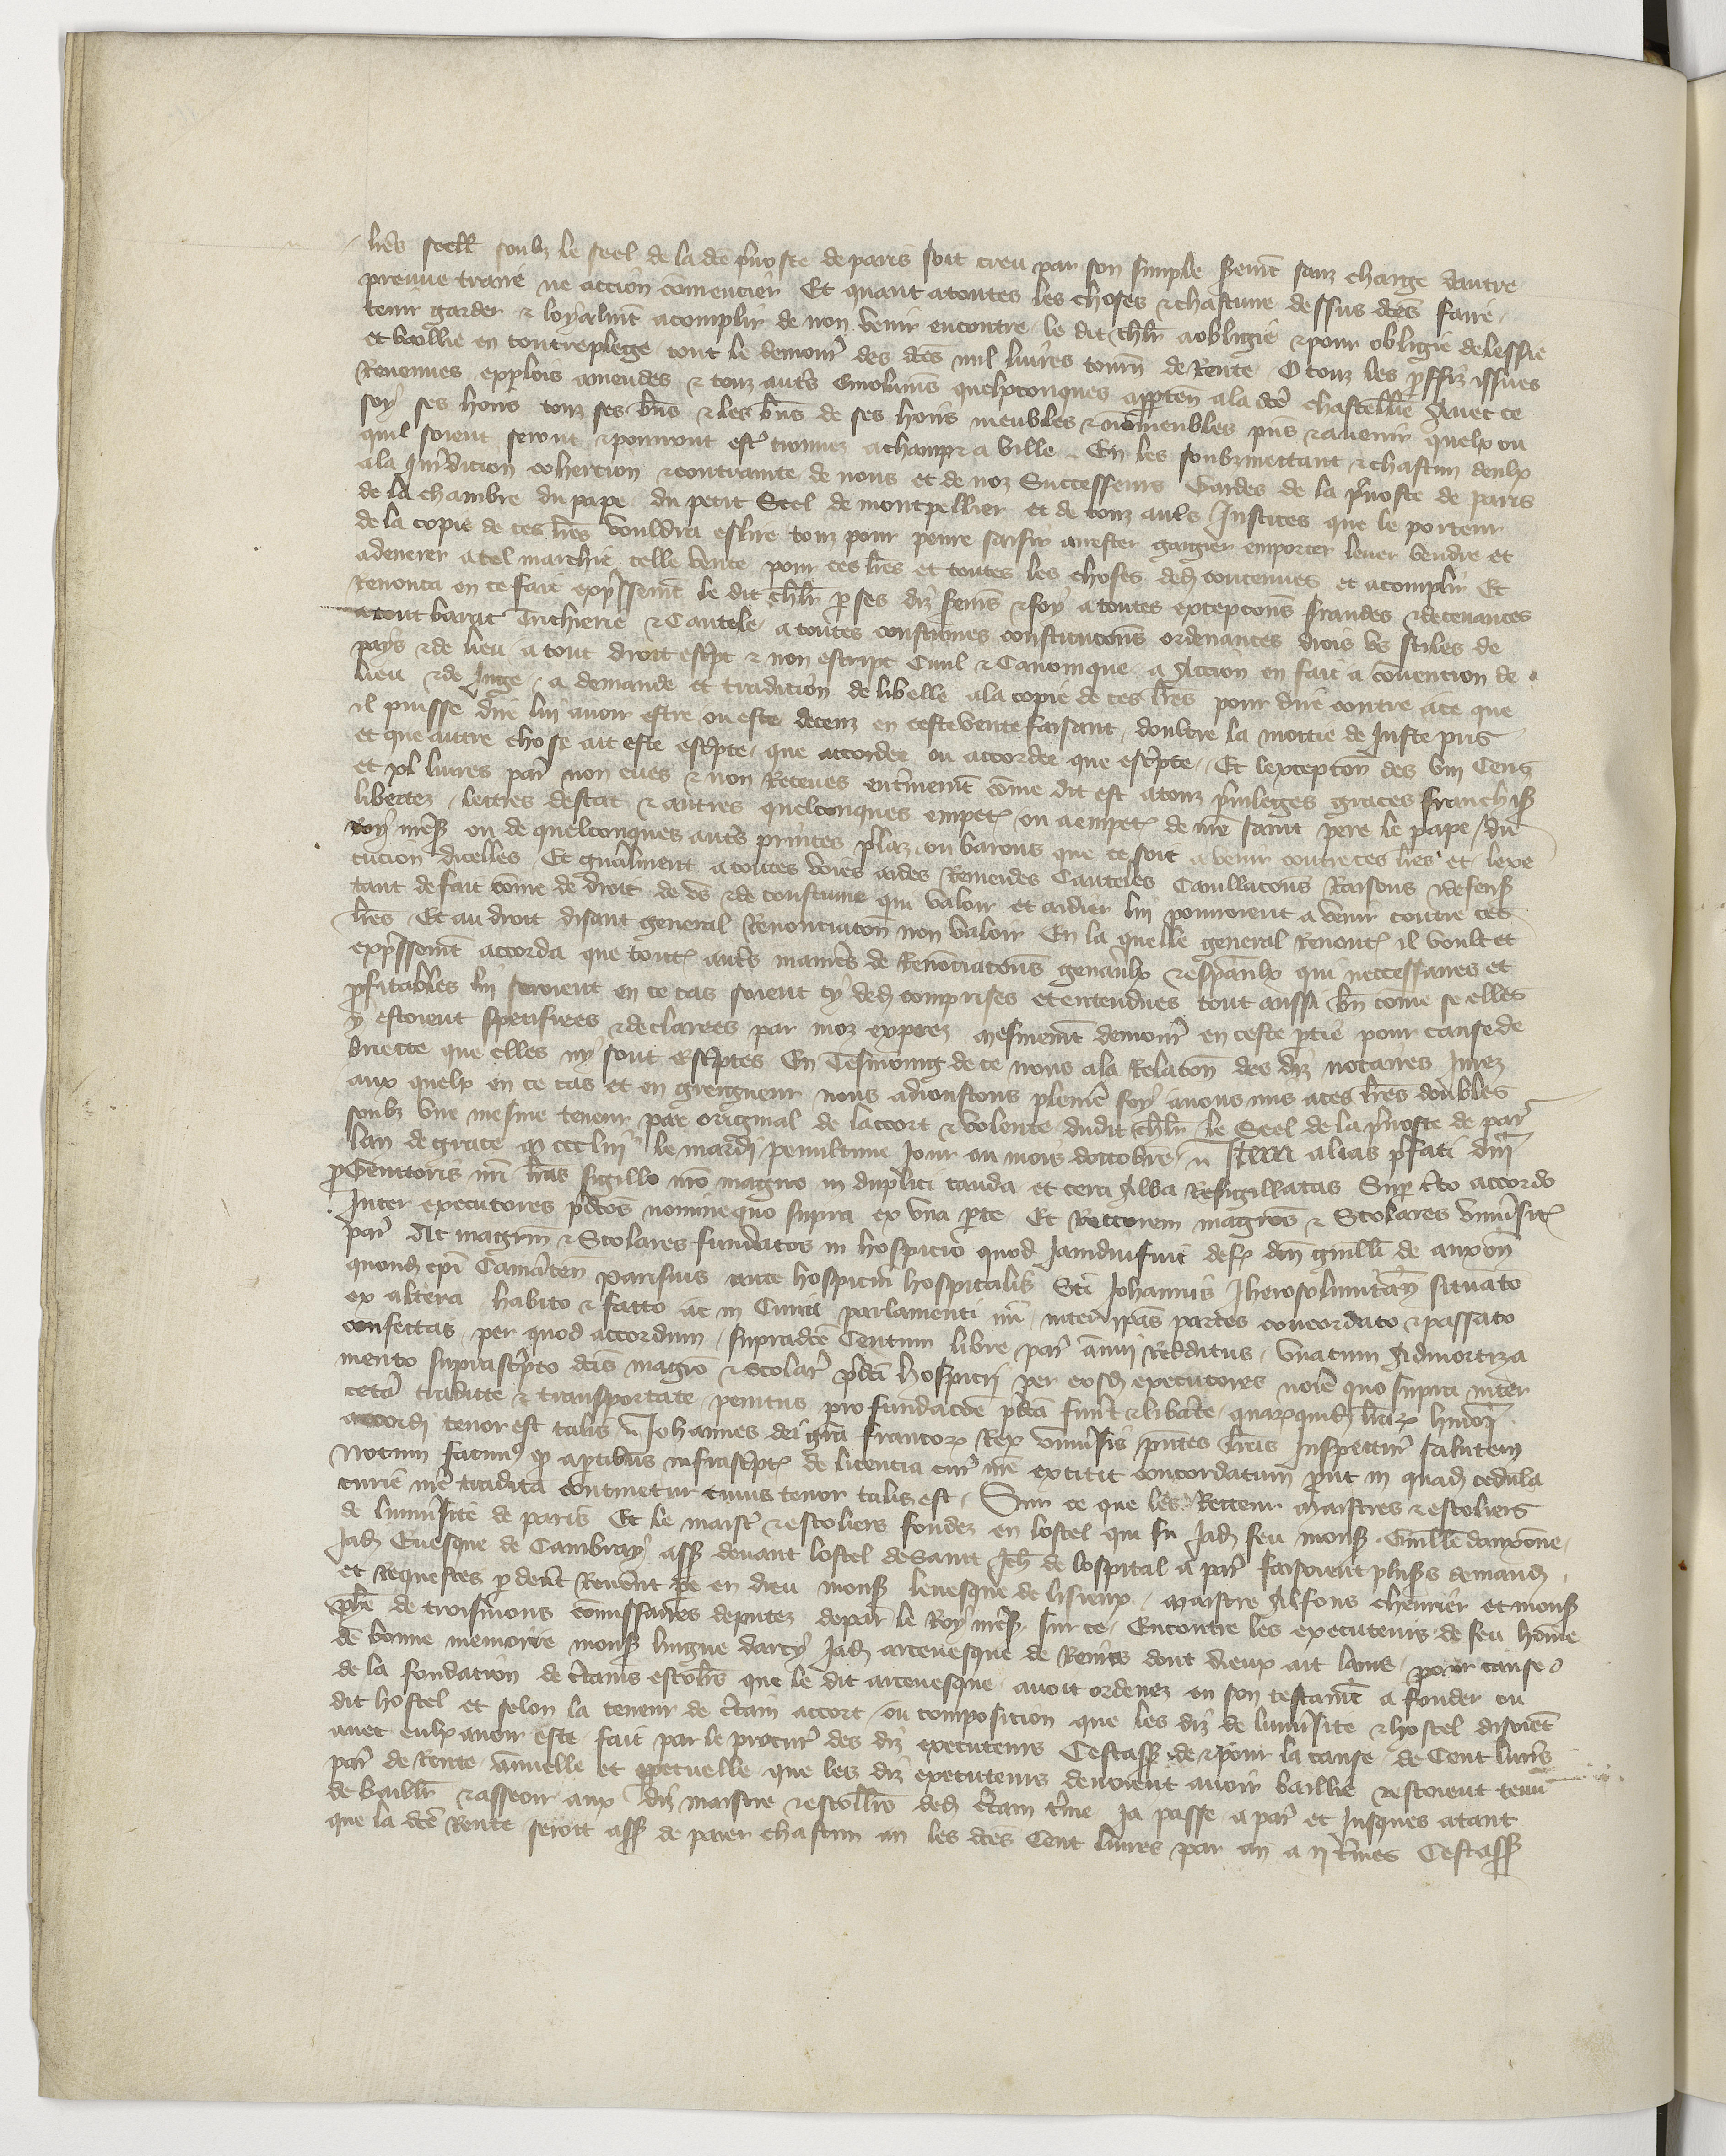 lres seell soubz le seel de la dce pvoste de paris soit creu par son simple seremt sanz charge dautre
preuve traire ne accion comencier Et quant a toutes les choses & chascune dessus dces faire
tenir garder & loyalmt acomplir de non venir encontre le dit chlr a obligie & pour obligie delessie
et baillie en contreplege tout le demour des dces mil livres tourn de Rente O touz les proffiz issues
Revenues explois amendes & touz autrs emolumens quelxconques apparten a la dce chastellenie Avec ce
soy ses hoirs touz ses bns & les bns de ses hoirs meubles & nomeubles pns & avenir quelx ou
quil soient seront & pourront est trouvez a champ & a ville En les soubzmettant & chascun deulx
a la Juridicion cohercion & contrainte de nous et de noz Successeurs Gardes de la pvoste de paris
de la chambre du pape du petit Seel de montpellier et de touz autrs Justices que le porteur
de la copie de ces lres vouldra eslire touz pour penre saisir arrester gaigier emporter lever vendre et
adenerer a tel marchie telle vente pour ces lres et toutes les choses dedens contenues et acomplir Et
Renonca en ce fait expssemt le dit chlr p ses diz seremens & foy a toutes excepcons fraudes & decevances
a tout barat Tricherie & Cautele a toutes constumes constitucons ordenances drois us stiles de
pays & de lieu a tout droit escpt & non escript Civil & Canonique a Accion en fait a convencion de
lieu & de Juge a demande et tradicion de libelle a la copie de ces lres pour dire contre a ce que
il puisse dire lui avoir estre ou este deceuz en ceste vente faisant doultre la moitie de Juste pris
et que autre chose ait este escpte que accordee ou accordee que escpte Et lexcepcon des viii Cens
et xl livres par non eues & non Receues entermemt come dit est a touz privileges graces franchis
libertez lettres destat & autres quelconques empetr ou a empetr de nre saint pere le pape du
Roy nres ou de quelconques autrs princes plaz ou barons que ce soit a venir contre ces lres et lexe
cucion dicelles Et gnalment a toutes voies aides Remedes Cauteles Cavillacons Raisons & defens
tant de fait come de droit de us & de coustume qui valoir et aidier lui pourroient a venir contre ces
lres Et au droit disant general Renonciacon non valoir En la quelle general Renonc il voult et
expssemt accorda que toutes autrs manieres de Renonciacons generaulx & espciaulx qui neccessaires et
pfitables lui seroient en ce cas soient cy deds comprises et entendues tout aussi bn come se elles
y estoient specifiees & declarees par moz exprez mesmemt demour en ceste ptie pour cause de
briecte que elles ny sont escptes En Tesmoing de ce nous a la Relacon des diz notaires Jurez
aux quelx en ce cas et en greigneur nous adjoustons pleniere foy avons mis a ces lres doubles
soubz une mesme teneur par original de laccort & volente dudit chlr le Seel de la pvoste de par
lan de grace m ccc liii le mardi penultime Jour au mois doctobre Item alias pfati dni
pGenitoris nri lras sigillo nro magno in duplici cauda et cera Alba Resigillatas Sup cto accordo
Inter executores pdctos nomine quo supra ex una pte Et Rectorem magros & Scolares univsitatis
par Ac magrm & Scolares fundatos in hospicio quod Jamdiu fuit def dni guilli de auxon
quond epi Camacen parisius ante hospicium hospitalis Sti Johannis Iherosolimitani situato
ex altera habito & facto ac in Curia parlamenti nri inter ipas partes concordato & passato
confectas per quod accordum supradce Centum libre par annui Redditus unacum Admortiza
mento suprascpto dcis magro & scolar pdci hospicii per eosd executores noie quo supra inter
cetera tradite & transportate penitus pro fundacoe pdca funt & liberate quarquid lrar huiuo
accordi tenor est talis Johannes dei gra francor Rex univsis pntes lras Inspectur salutem
Notum facim q a ptibus infrascpt de licencia cur nre extitit concordatum put in quad cedula
curie nre tradita continetur cuius tenor talis est Sur ce que les Recteur maistres & escoliers
de luniv'site de paris Et le maistr & escoliers fondez en lostel qui fu Jad feu mons Guille dauxonne
Jad Evesque de Cambray ass devant lostel de Saint Jeh de lospital a par faisoient pluss demand
et Requestes p devt Revent pe en dieu mons levesque de lisieux maistre Alfons chevrier et mons
phe de troismons comissaires deputez depar le Roy nres sur ce Encontre les executeurs de feu home
de bonne memoire mons hugue darcy Jad arcevesque de Reins dont dieux ait lame pour cause
de la fondacion de ctains escoliers que le dit arcevesque avoit ordenez en son testamt a fonder ou
dit hostel et selon la teneur de ctain accort ou composicion que les diz de luniv'site & hostel disoient
avec eulx avoir este fait par le procur des diz executeurs Cestass de & pour la cause de Cent livrs
par de Rente annuelle et ppetuelle que les diz executeurs devoient avoir baillie & estoient tenu
de baillr & asseoir aux diz maistre & escoliers deds ctain tme Ja passe a par et Jusques a tant
que la dce Rente seroit ass de paier chascun an les dces Cent livres par an a ii tmes Cestass